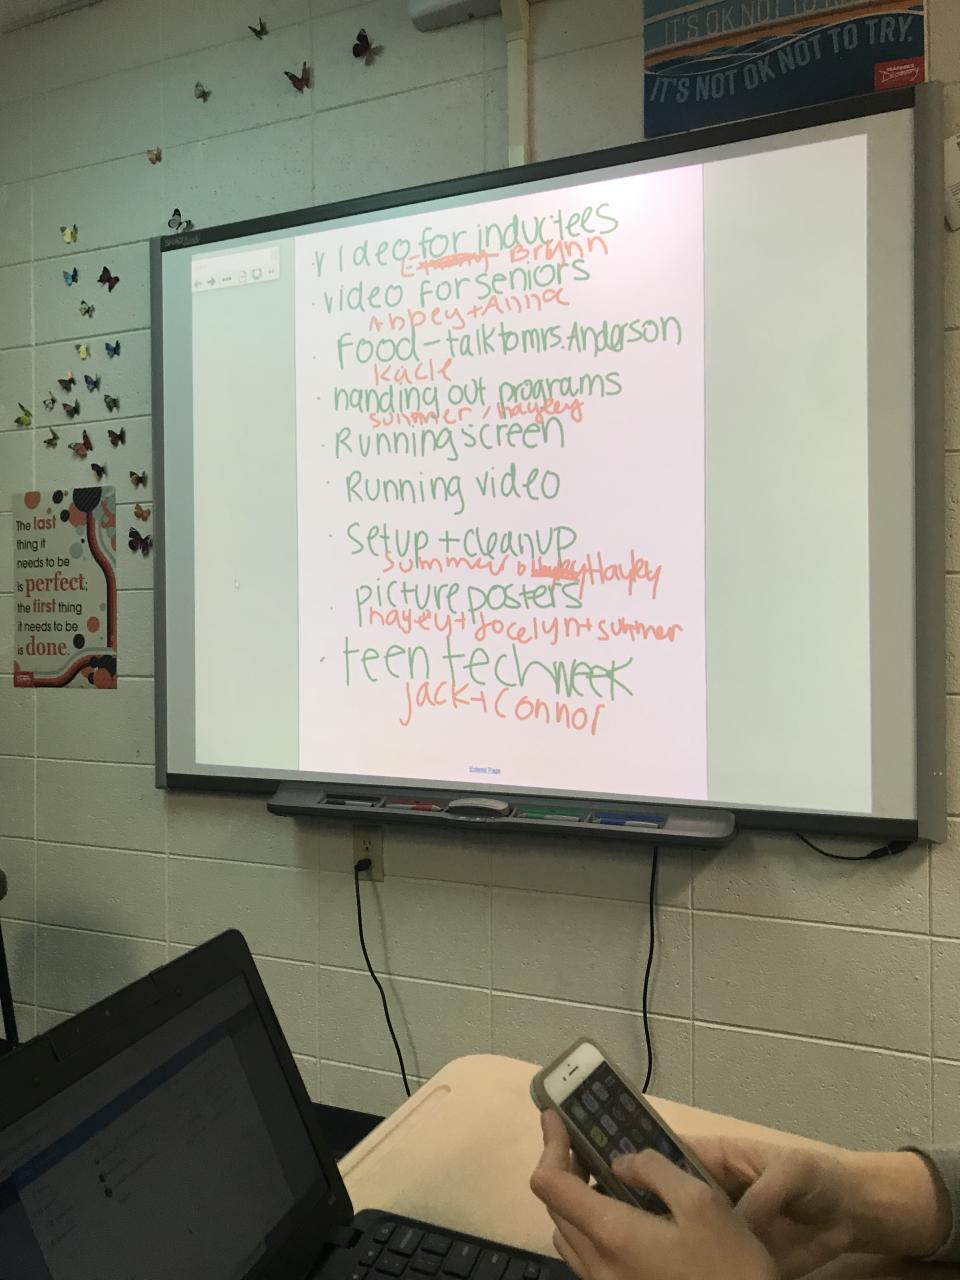 IT'S OK NOT TO
IT'S NOT OK NOT TO TRY.
Discovery
SMART
video for inductees
Brynn
video for seniors
Abbey + Anna
Food - talk to mrs. Anderson
Kacie
handing out programs
summer / hayley
Running screen
Running video
setup + cleanup
summer + Hayley
picture posters
hayley + Jocelyn + summer
teen tech week
Jack + Connor
Extend Page
The last
thing it
needs to be
is perfect;
the first thing
it needs to be
is done.